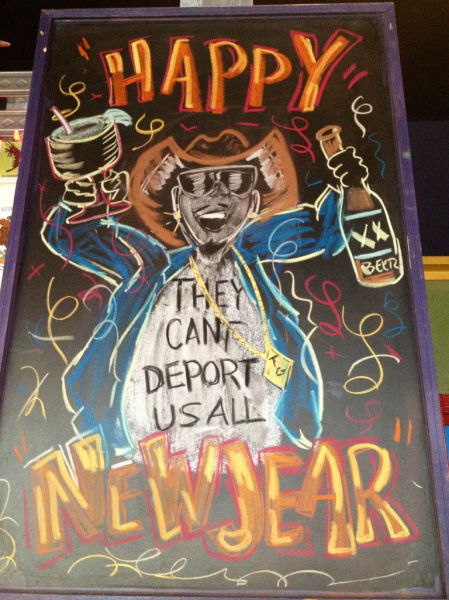 HAPPY
THEY
CAN'T
DEPORT
US ALL
XX
BEER
NEW JEAR